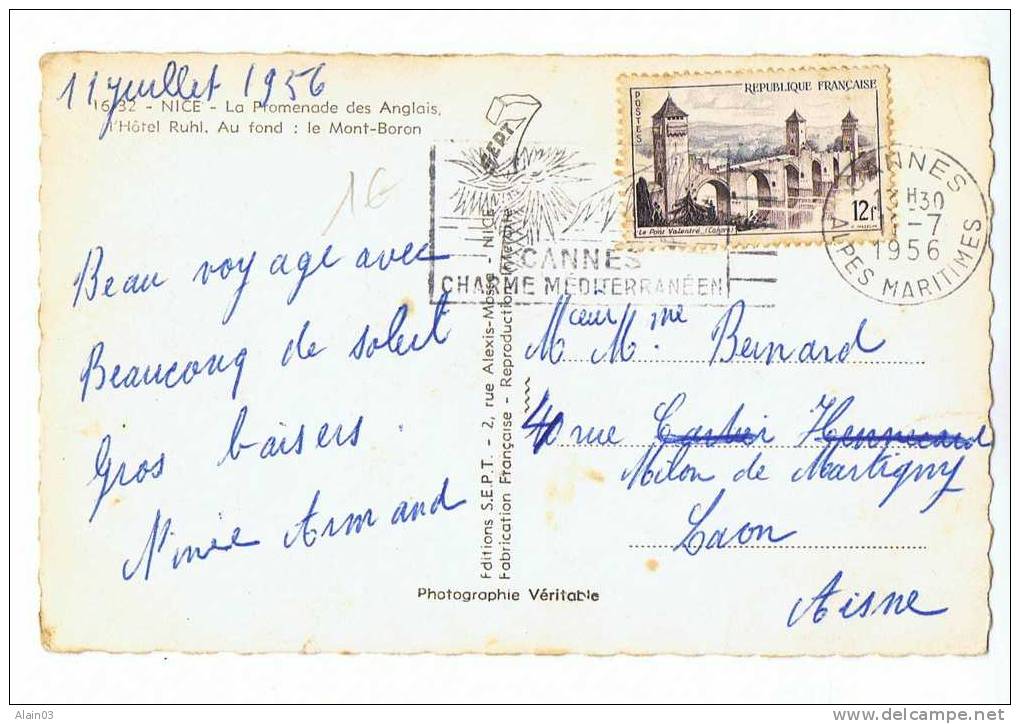 11 juillet 1956
16 32 - NICE - La Promenade des Anglais,
l'Hôtel Ruhl. Au fond : le Mont-Boron
1€
Beau voyage avec
Beaucoup de soleil
Gros baisers.
Armand
Editions S.E.P.T. - 2, rue Alexis-Mossa - NICE
Fabrication Française - Reproduction Interdite
Photographie Véritable
SEPT
CANNES
CHARME MÉDITERRANÉEN
REPUBLIQUE FRANÇAISE
POSTES
12f
Le Pont Valentré (Cahors)
CANNES
H30
-7
1956
ALPES MARITIMES
Mœur Mme
M. Bernard
40 rue
Milon de Martigny
Laon
Aisne
Alain03
www.delcampe.net